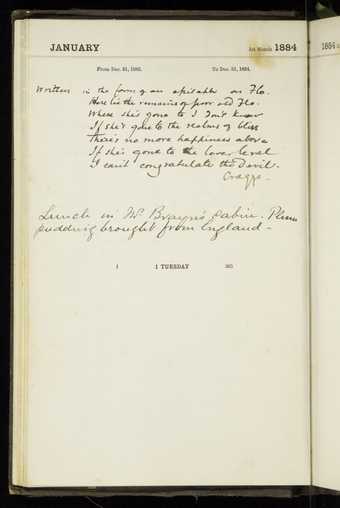 JANUARY 1st Month 1884
From Dec. 31, 1883. To Dec. 31, 1884.
Written in the form of an epitaph on Flo.
Here lies the remains of poor old Flo.
Where she's gone to I don't know
If she's gone to the realms of bliss
There's no more happiness above
If she's gone to the lower level
I can't congratulate the Devil.
Craggs.
Lunch in Mr Brayn's cabin. Plum
pudding brought from England -
1 1 TUESDAY 365
1884